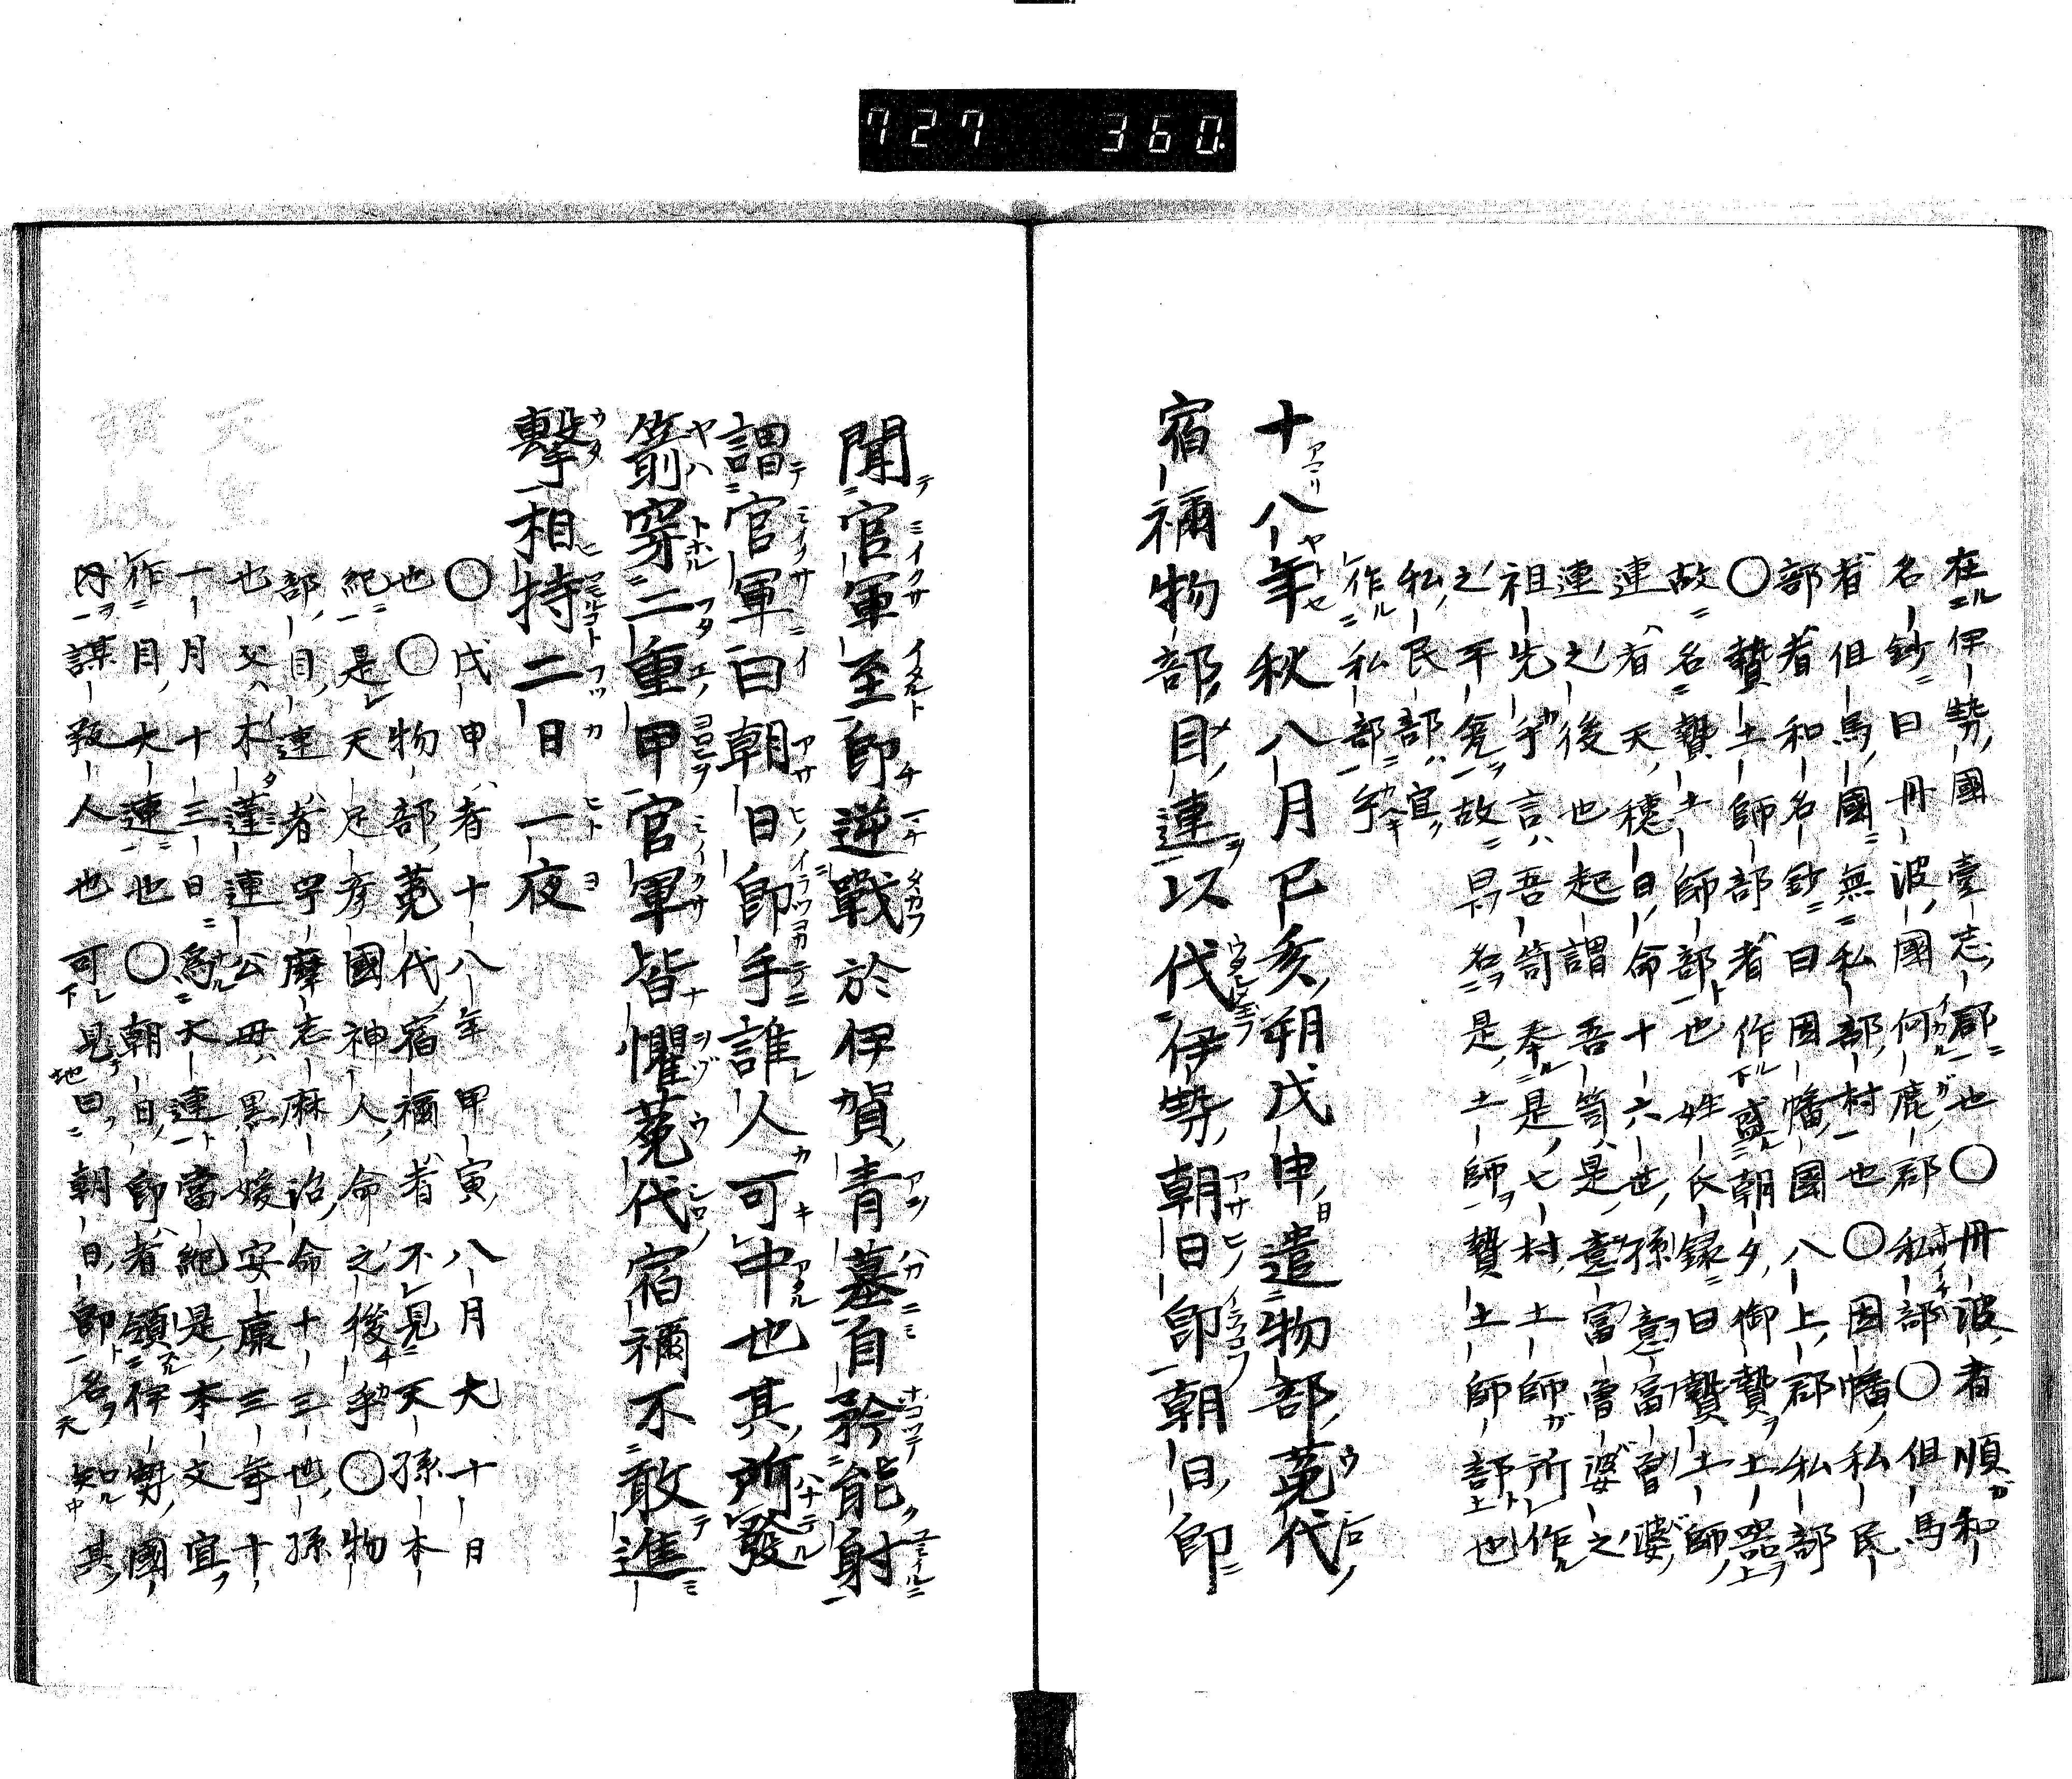 727 360
在伊勢國壹志郡也〇丹波者順和
名鈔曰丹波國何鹿郡私部〇但馬
者但馬國無私部村也〇因幡私民
部者和名鈔曰因幡國八上郡私部
〇贄土師部者作盛朝夕御贄土器
故名贄土師部也姓氏録曰贄土師
連者天穗日命十六世孫意富曾婆
連之後也起謂吾笥是意富曾婆之
祖先乎言吾笥奉是七村土師所作
之故号名是土師贄土師部也
私民部宜
作私部乎
十八年秋八月己亥朔戊申遣物部菟代
宿禰物部目連以代伊勢朝日郎朝日郎
聞官軍至即逆戰於伊賀青墓自矜能射
謂官軍曰朝日郎手誰人可中也其所發
箭穿二重甲官軍皆懼菟代宿禰不敢進
擊相持二日一夜
〇戊申者十八年甲寅八月大十日
也〇物部菟代宿禰者不見天孫本
紀是天足彦國神人命之後乎〇物
部目連者宇摩志麻治命十三世孫
也父木蓮連公毋黒媛安康三年十
一月十三日為大連當紀是本文宜
作目大連也〇朝日郎者領伊勢國
内謀叛人也可見曰朝日郎名矣其